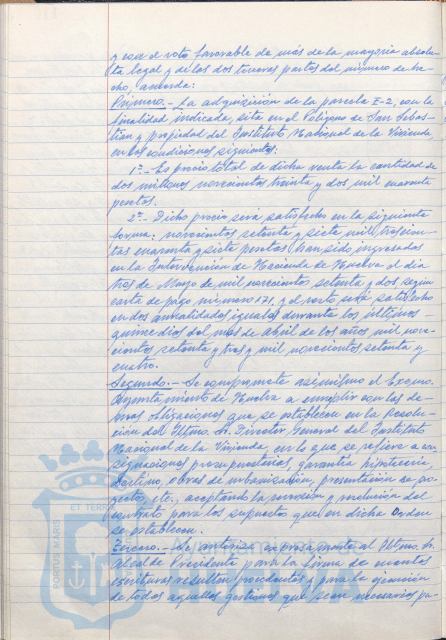 y con el voto favorable de más de la mayoría absolu-
ta legal y de los dos terceras partes del número de he-
cho, acuerda:
Primero.- La adquisición de la parcela E-2, con la
finalidad indicada, sita en el Polígono de San Sebas-
tián y propiedad del Instituto Nacional de la Vivienda
en las condiciones siguientes:
1º.- Es precio total de dicha venta la cantidad de
dos millones novecientos treinta y dos mil cuarenta
pesetas.
2º.- Dicho precio será satisfecho en la siguiente
forma: novecientos setenta y siete mil trescien-
tas cuarenta y siete pesetas han sido ingresadas
en la Intervención de Hacienda de Huelva el día
tres de Marzo de mil novecientos setenta y dos según
carta de pago número 171, y el resto será satisfecho
en dos anualidades iguales durante los últimos
quince días del mes de abril de los años mil nove-
cientos setenta y tres y mil novecientos setenta y
cuatro.
Segundo.- Se compromete asimismo el Excmo.
Ayuntamiento de Huelva a cumplir con las de-
más obligaciones que se establecen en la Resolu-
ción del Iltmo. Sr. Director General del Instituto
Nacional de la Vivienda, en lo que se refiere a con-
signaciones presupuestarias, garantía hipotecaria,
destino, obras de urbanización, presentación de pro-
yecto, etc., aceptando la reversión y resolución del
contrato para los supuestos que en dicha Orden
se establecen.
Tercero.- Se autoriza expresamente al Iltmo. Sr.
Alcalde Presidente para la firma de cuantas
escrituras resulten procedentes y para la ejecución
de todas aquellas gestiones que sean necesarias pa-
PORTUS MARIS
ET TERRAE